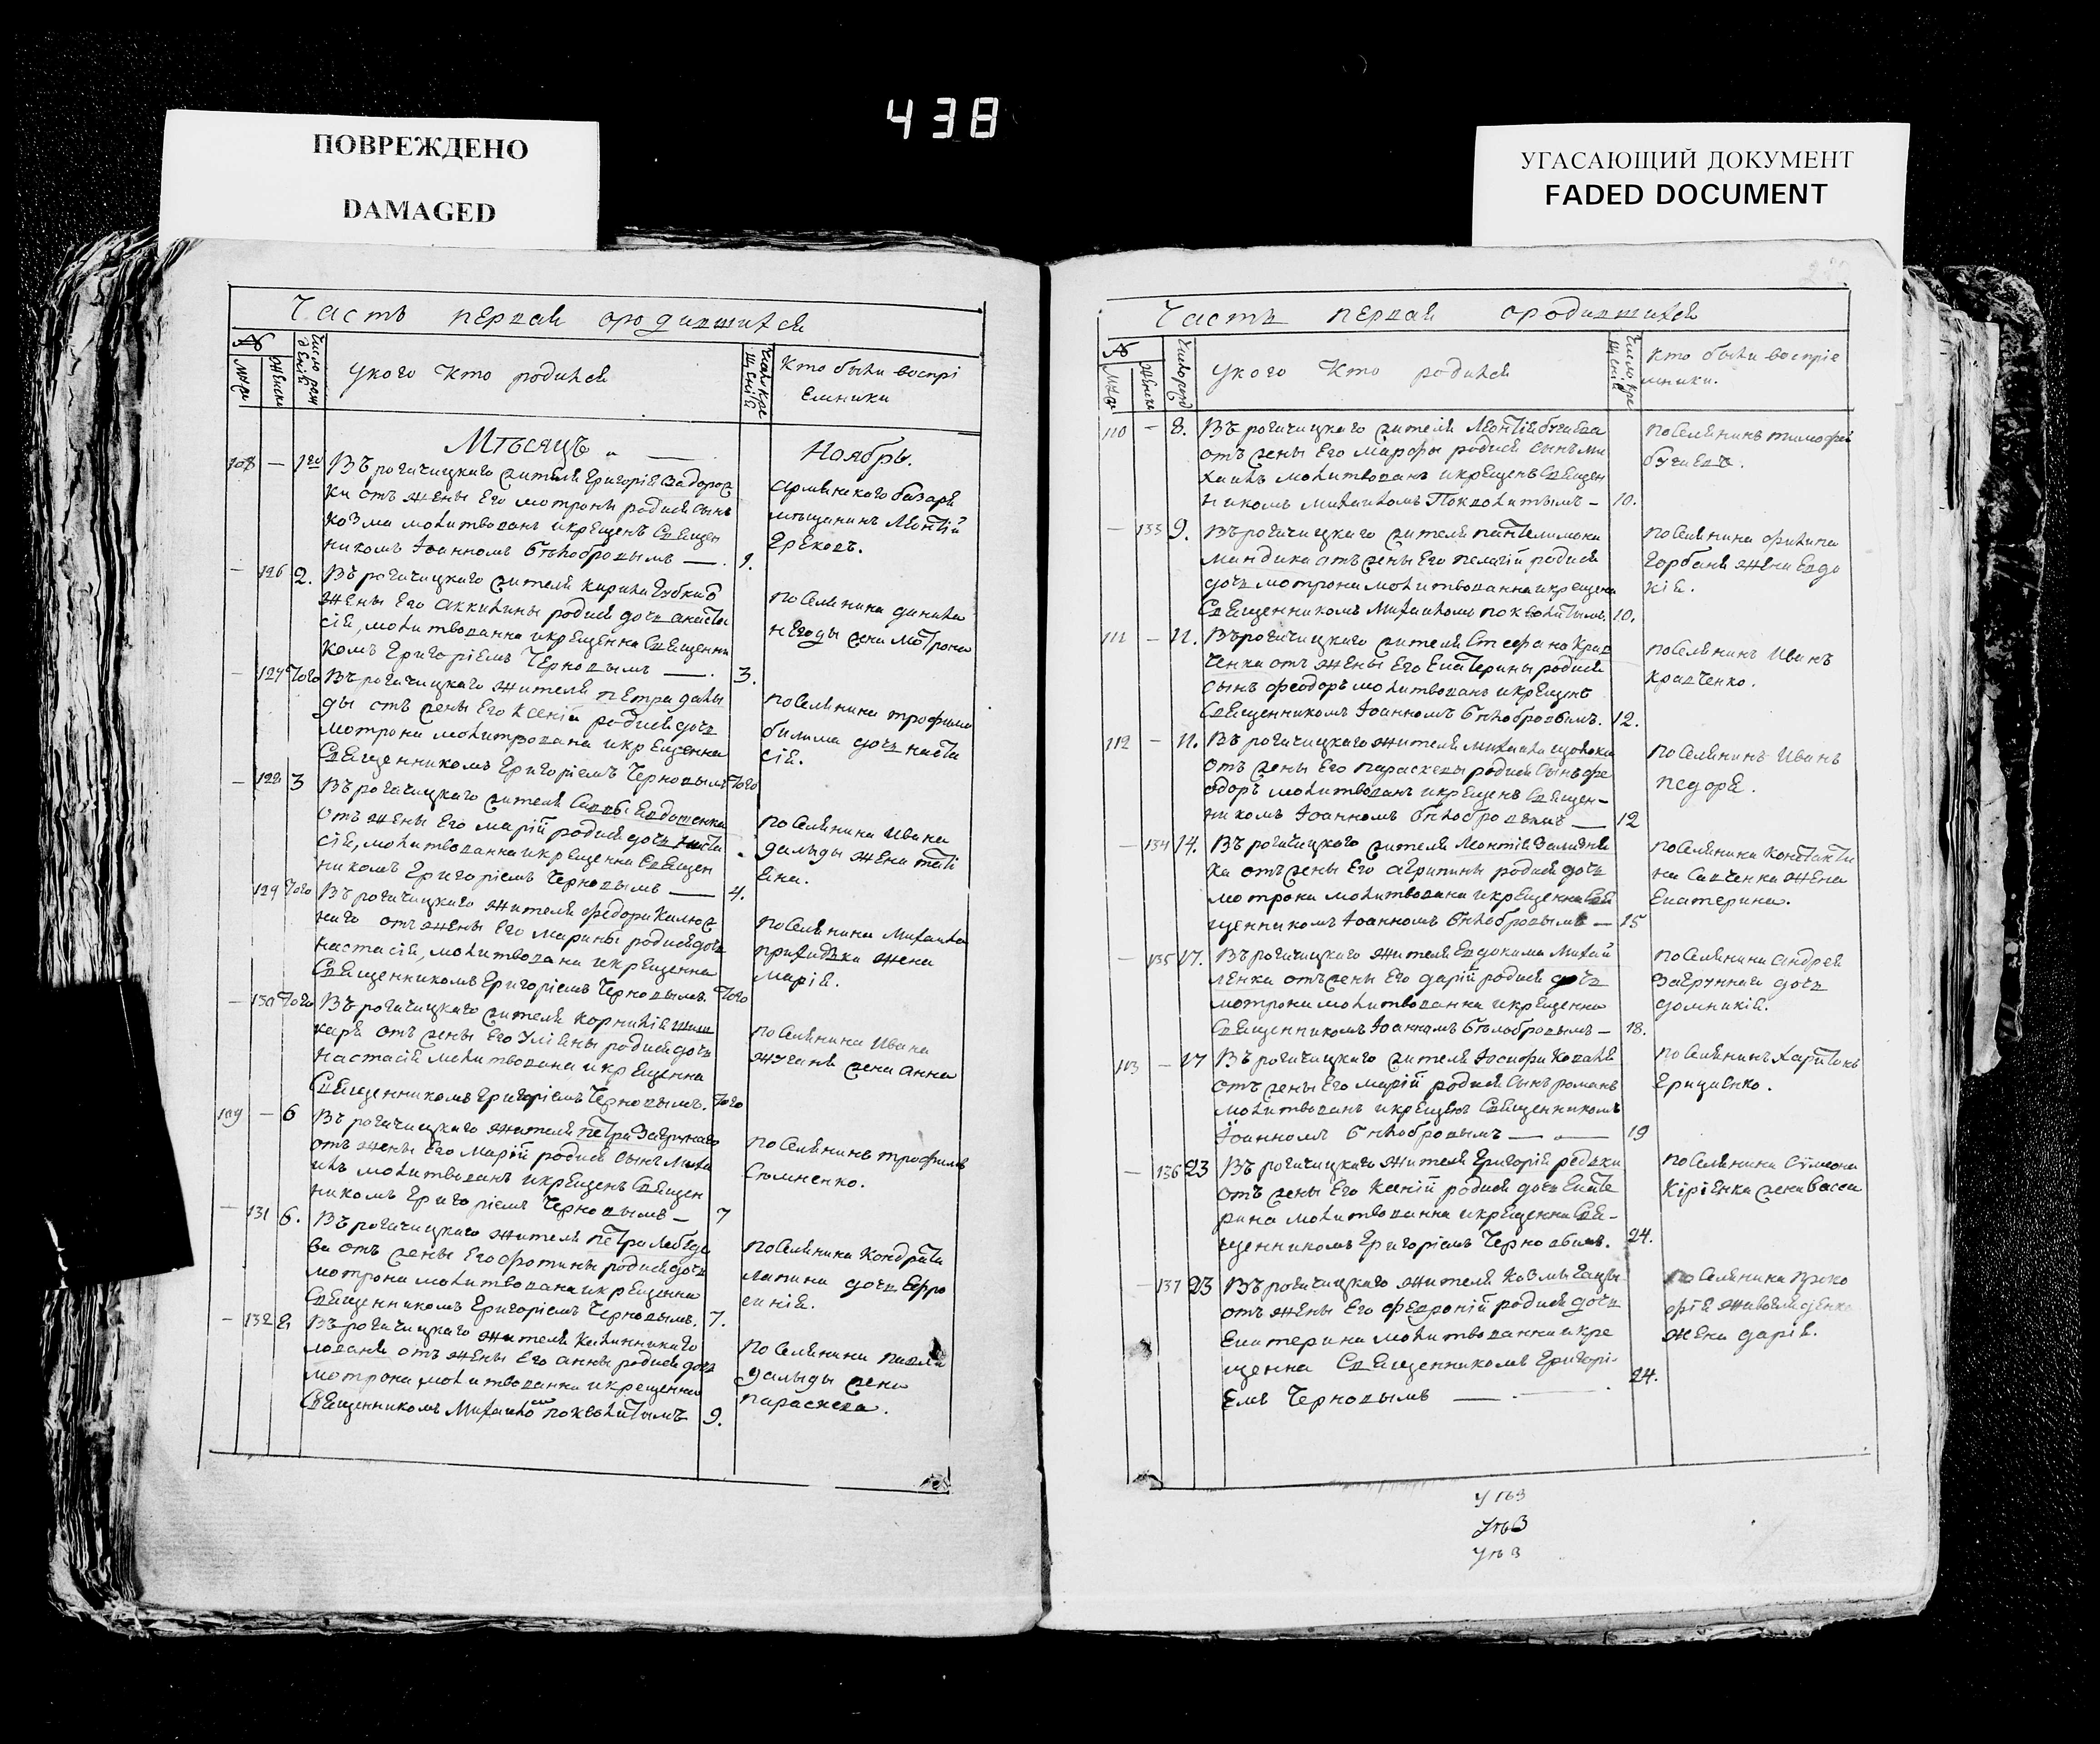 438
ПОВРЕЖДЕНО
DAMAGED
УГАСАЮЩИЙ ДОКУМЕНТ
FADED DOCUMENT
Часть первая ородившихся
№
Число рож
дения
у кого кто родился
Число кре
щения
Кто были воспрі
емники
Мѣсяцъ Ноябрь.
108 — 1го Въ рогачицкаго жителя Григорія Задорож
ки отъ жены его мотроны родися сынъ
козма молитвованъ и крещенъ Священ
никомъ Іоанномъ Бѣлобровымъ — 1.
Армянского базаря
мѣщанинъ Леонтій
Грековъ.
— 126 2. Въ рогачицкаго жителя кирила Губки 
жены его аккилины родися дочь анаста
сія, молитвованна и крещенна Священни
комъ Григоріемъ Черновымъ — 3.
поселянина данила
негоды жена мотрона
— 127 того Въ рогачицкаго жителя петра далы
ды отъ жены его ксеніи родися дочь
мотрона молитвована и крещенна
Священникомъ Григоріемъ Черновымъ того
поселянина трофима
билима дочь наста
сія.
— 128 3 Въ рогачицкаго жителя Саввы Евдошенка
отъ жены его маріи родися дочь наста
сія, молитвованна и крещенна Священ
никомъ Григоріемъ Черновымъ — 4.
поселянина Ивана
далыды жена тати
яна.
129 того Въ рогачицкаго жителя федора Калюж
наго отъ жены его марины родися дочь
настасія, молитвована и крещенна
Священникомъ Григоріемъ Черновымъ. того
поселянина Михаила
приходька жена
марія.
— 130 того Въ рогачицкаго жителя корнилія шин
каря отъ жены его Уліяны родися дочь
настасія молитвована и крещенна
Священникомъ Григоріемъ Черновымъ. того
поселянина Ивана
жена анна
109 — 6 Въ рогачицкаго жителя петра Загруннаго
отъ жены его Маріи родися сынъ Миха
илъ молитвованъ и крещенъ Священ
никомъ Григоріемъ Черновымъ — 7
поселянинъ трофимъ
Сюмненко.
— 131 6. Въ рогачицкаго жителя петра Лебеде
ва отъ жены его фотины родися дочь
мотрона молитвована и крещенна
Священникомъ Григоріемъ Черновымъ. 7.
поселянина Кондрата
лапина дочь Евро
синія.
— 132 8 Въ рогачицкаго жителя Калинника го
лована отъ жены его анны родися дочь
мотрона молитвованна и крещенна
Священникомъ Михаиломъ покволитымъ 9.
поселянина павла
далыды жена
параскева.
Часть первая ородившихся
№
Число рожд
у кого кто родился
Число кре
щенія
Кто были воспріе
мники.
110 — 8. Въ рогачицкаго жителя Леонтія бугаева
отъ жены его Марфы родися сынъ ми
хаилъ молитвованъ и крещенъ Священ
никомъ михаиломъ Покволитымъ — 10.
поселянинъ тимофей
бугаевъ.
— 133 9. Въ рогачицкаго жителя пантелимона
мандика отъ жены его пелагіи родися
дочь мотрона молитвованна и крещена
Священникомъ Михаиломъ покволитымъ. 10.
поселянина филипа
Горбаня жена Евдо
кія.
111 — 11. Въ рогачицкаго жителя Стефана Крав
ченка отъ жены его Екатерины родися
сынъ феодоръ молитвованъ и крещенъ
Священникомъ Іоанномъ Бѣлобровымъ. 12.
поселянинъ Иванъ
кравченко.
112 — 11. Въ рогачицкаго жителя Михаила щолока
отъ жены его параскевы родися сынъ фе
одоръ молитвованъ и крещенъ Священ-
никомъ Іоанномъ бѣлобровымъ — 12
поселянинъ Иванъ
педоря.
— 134 14. Въ рогачицкаго жителя Леонтія Заидня
ка отъ жены его агрипины родися дочь
мотрона молитвована и крещенна Свя
щенникомъ Іоанномъ Бѣлобровымъ — 15
поселянина Константи
на Савченка жена
Екатерина.
— 135 17. Въ рогачицкаго жителя Евдокима Михай
ленка отъ жены его дарій родися дочь
мотрона молитвованна и крещенна
Священникомъ Іоанномъ Бѣлобровымъ — 18.
поселянина андрея
Загруннаго дочь
домникія.
113 — 17 Въ рогачицкаго жителя Іосифа Коваля
отъ жены его маріи родися сынъ романъ
молитвованъ и крещенъ Священникомъ
Іоанномъ Бѣлобровымъ — 19
поселянинъ харитонъ
Грищенко.
— 136 23 Въ рогачицкаго жителя Григорія редьки
отъ жены его Ксеніи родися дочь Екате
рина молитвованна и крещенна Свя-
щенникомъ Григоріемъ Черновымъ. 24.
поселянина Сумеона
Кіріенка жена васса
— 137 23 Въ рогачицкаго жителя Козмы Гацы
отъ жены его февроніи родися дочь
Екатерина молитвованна и кре
щенна Священникомъ Григорі-
емъ Черновымъ — 24.
поселянина проко
фія
жена дарія.